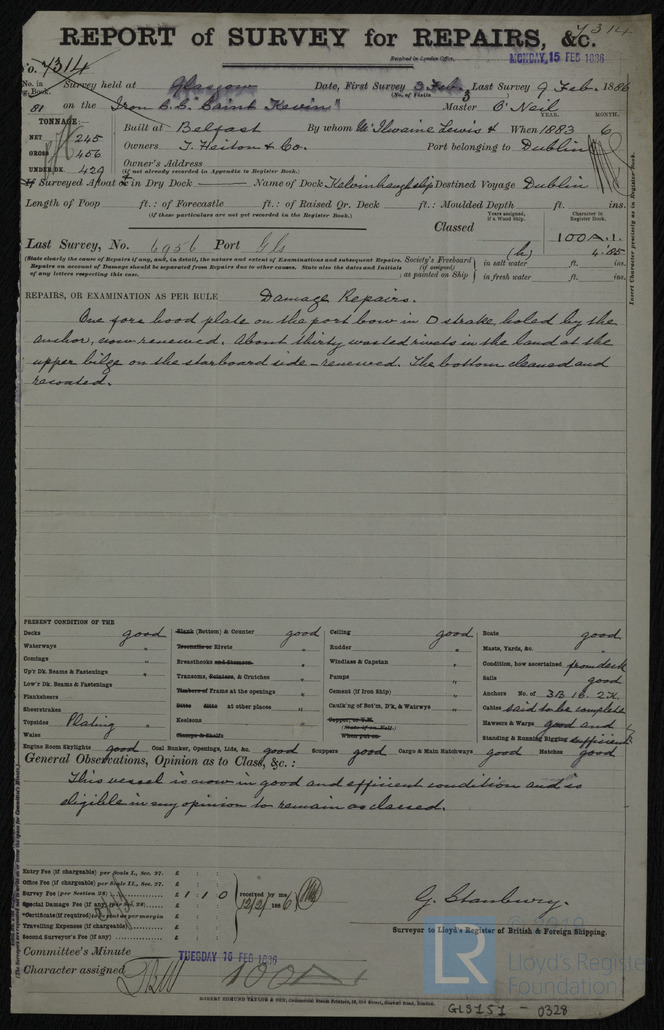 7314
REPORT of SURVEY for REPAIRS, &c.
Received in London Office. MONDAY, 15 FEB 1886
No. 7314
No. in Reg. Book. Survey held at Glasgow Date, First Survey 3 Feb. Last Survey 9 Feb. 1886
(No. of Visits 3)
81 on the Iron S.S. "Saint Kevin" Master O'Neil
TONNAGE: YEAR. MONTH.
NET 245 Built at Belfast By whom McIlwaine Lewis & When 1883 6
GROSS 456 Owners T. Heiton & Co. Port belonging to Dublin
UNDER DK. 429 Owner's Address
(if not already recorded in Appendix to Register Book.)
If Surveyed Afloat or in Dry Dock Name of Dock Kelvinhaugh slip Destined Voyage Dublin
Length of Poop ft.: of Forecastle ft.: of Raised Qr. Deck ft.: Moulded Depth ft. ins.
(if these particulars are not yet recorded in the Register Book.)
Years assigned, if a Wood Ship. Character in Register Book.
Classed 100A.1.
Last Survey, No. 6956 Port Gls (h) 4.'85
(State clearly the Cause of Repairs if any, and, in detail, the nature and extent of Examinations and subsequent Repairs.
Repairs on account of Damage should be separated from Repairs due to other causes. State also the dates and Initials
of any letters respecting this case.)
Society's Freeboard (if assigned) as painted on Ship in salt water ft. ins.
in fresh water ft. ins.
Insert Character precisely as in Register Book.
REPAIRS, OR EXAMINATION AS PER RULE Damage Repairs.
One fore hood plate on the port bow in D strake, holed by the
anchor, now renewed. About thirty wasted rivets in the land at the
upper bilge on the starboard side - renewed. The bottom cleaned and
recoated.
PRESENT CONDITION OF THE
Decks good Blank (Bottom) & Counter good Ceiling good Boats good
Waterways " Treenails or Rivets " Rudder " Masts, Yards, &c. "
Comings " Breasthooks and Stemson " Windlass & Capstan " Condition, how ascertained from deck
Up'r Dk. Beams & Fastenings " Transoms, Pointers, & Crutches " Pumps " Sails good
Low'r Dk. Beams & Fastenings Timbers of Frames at the openings " Cement (if Iron Ship) " Anchors No. of 3B 1S. 2K.
Plankshears Ditto ditto at other places " Caulk'g of Bot'm, D'k, & Waterways " Cables said to be complete
Sheerstrakes Keelsons " Copper or Y.M. (State if on Felt.) Hawsers & Warps good and
Topsides Plating " When put on Standing & Running Rigging sufficient
Wales Clamps & Shelfs
Engine Room Skylights good Coal Bunker, Openings, Lids, &c. good Scuppers good Cargo & Main Hatchways good Hatches good
General Observations, Opinion as to Class, &c.:
This vessel is now in good and efficient condition and is
eligible in my opinion to remain as classed.
Entry Fee (if chargeable) per Scale I., Sec. 27. £ : :
Office Fee (if chargeable) per Scale II., Sec. 27. £ : :
Survey Fee (per Section 28) £ 1 : 1 : 0 received by me
Special Damage Fee (if any) (per Sec. 28) £ 12/2/1886
Certificate (if required) to be sent as per margin £
Travelling Expenses (if chargeable) £
Second Surveyor's Fee (if any) £
G. Stanbury.
Surveyor to Lloyd's Register of British & Foreign Shipping.
Committee's Minute TUESDAY 16 FEB 1886
Character assigned 100A1
ROBERT EDMUND TAYLOR & SON, Commercial Steam Printers, 19, Old Street, Goswell Road, London.
© 2019
LR
Lloyd's Register
Foundation
GLS151 - 0328